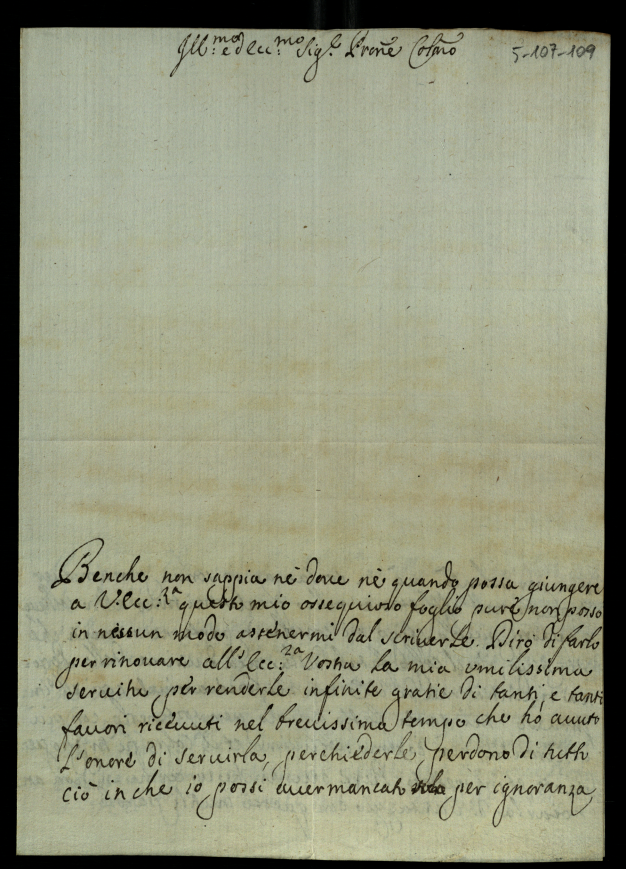 Ill.mo ed Ecc.mo Sig.r Prone Col.mo
5-107-109
Benche non sappia nè dove nè quando possa giungere
a V. Ecc.za questo mio ossequioso foglio pure non posso
in nessun modo astenermi dal scriverLe. Dirò di farlo
per rinovare all'Ecc.za Vostra La mia umilissima
servitu, per renderLe infinite gratie di tanti, e tanti
favori ricevuti nel brevissimo tempo che hò avuto
L'onore di servirla, per chiederLe perdono di tutto
ciò in che io possi aver mancato per ignoranza